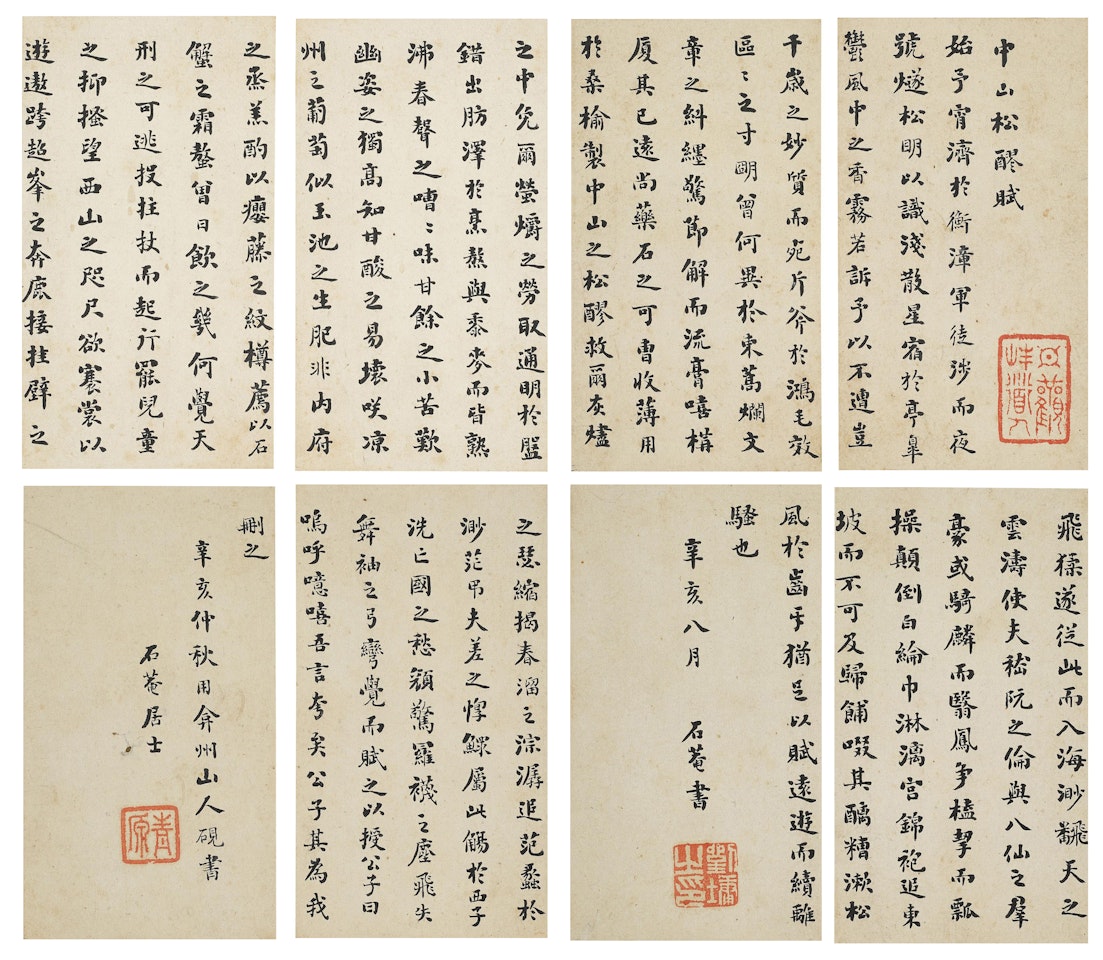 中山松醪賦
始予宵濟於衡漳軍徒涉而夜
號燧松明以識淺散星宿於亭皋
鬱風中之香霧若訴予以不遭豈
日觀峰道人
千歲之妙質而死斤斧於鴻毛效
區〻之寸明曾何異於束蒿爛文
章之糾纏驚節解而流膏嘻構
厦其已遠尚藥石之可曹收薄用
於桑榆製中山之松醪救爾灰燼
之中免爾螢爝之勞取通明於盤
錯出肪澤於烹熬與黍麥而皆熟
沸春聲之嘈〻味甘餘之小苦歎
幽姿之獨高知甘酸之易壞笑凉
州之葡萄似玉池之生肥非內府
之烝羔酌以癭藤之紋樽薦以石
蟹之霜螯曾日飲之幾何覺天
刑之可逃投拄杖而起行罷兒童
之抑搔望西山之咫尺欲褰裳以
遊遨跨超峯之奔鹿接挂壁之
飛猱遂從此而入海渺翻天之
雲濤使夫嵇阮之倫與八仙之羣
豪或騎麟而翳鳳爭榼挈而瓢
操顛倒白綸巾淋漓宮錦袍追東
坡而不可及歸餔啜其醨糟漱松
風於齒牙猶足以賦遠遊而續離
騷也
辛亥八月
石菴書
劉墉之印
之瑟縮揭春溜之淙潺追范蠡於
渺茫弔夫差之惸鰥屬此觴於西子
洗亡國之愁顏驚羅襪之塵飛失
舞袖之弓彎覺而賦之以授公子曰
嗚呼噫嘻吾言夸矣公子其為我
刪之
辛亥仲秋用弇州山人硯書
石菴居士
青原